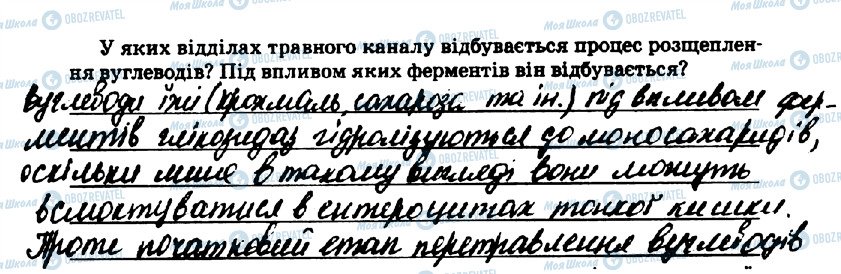 У яких відділах травного каналу відбувається процес розщеплен-
ня вуглеводів? Під впливом яких ферментів він відбувається?
Вуглеводи їжі (крохмаль, сахароза та ін.) під впливом фер-
ментів глікозидаз гідролізуються до моносахаридів,
оскільки лише в такому вигляді вони можуть
всмоктуватися в ентероцитах тонкої кишки.
Проте початковий етап перетравлення вуглеводів